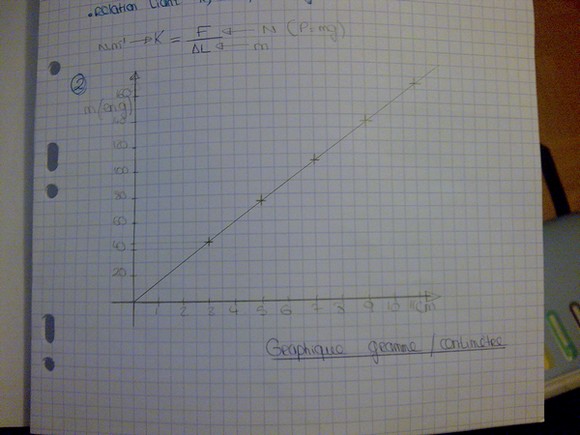 N.m⁻¹ → K = F ← N (P=mg)
ΔL ← m
②
m(en g)
160
140
120
100
80
60
40
20
1 2 3 4 5 6 7 8 9 10 11 cm
Graphique gramme / centimètre